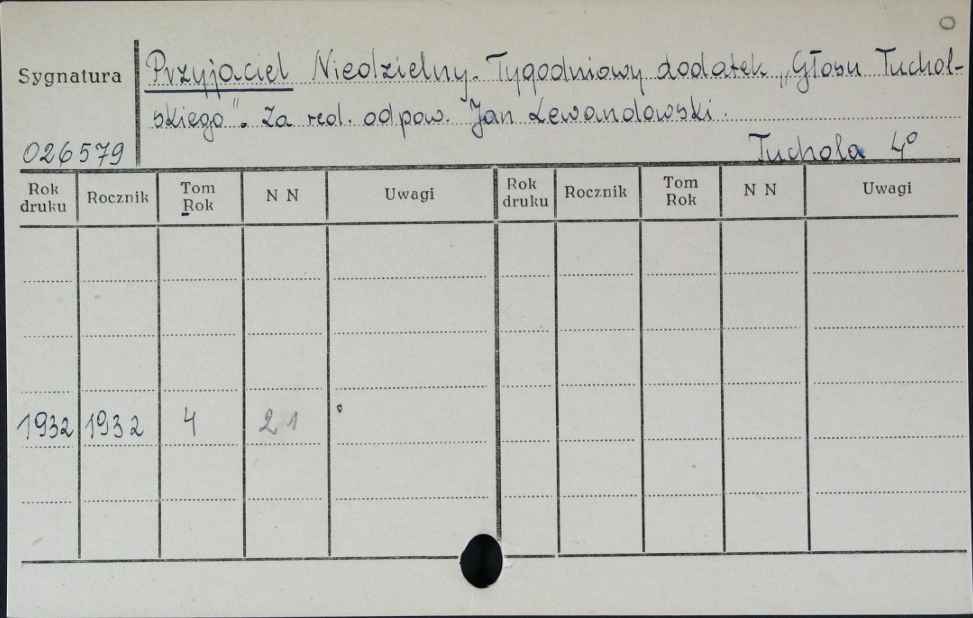 O
Sygnatura
Przyjaciel Niedzielny. Tygodniowy dodatek „Głosu Tuchol-
skiego". Za red. odpow. Jan Lewandowski.
026579
Tuchola 4°
Rok druku Rocznik Tom Rok N N Uwagi Rok druku Rocznik Tom Rok N N Uwagi
1932 1932 4 21